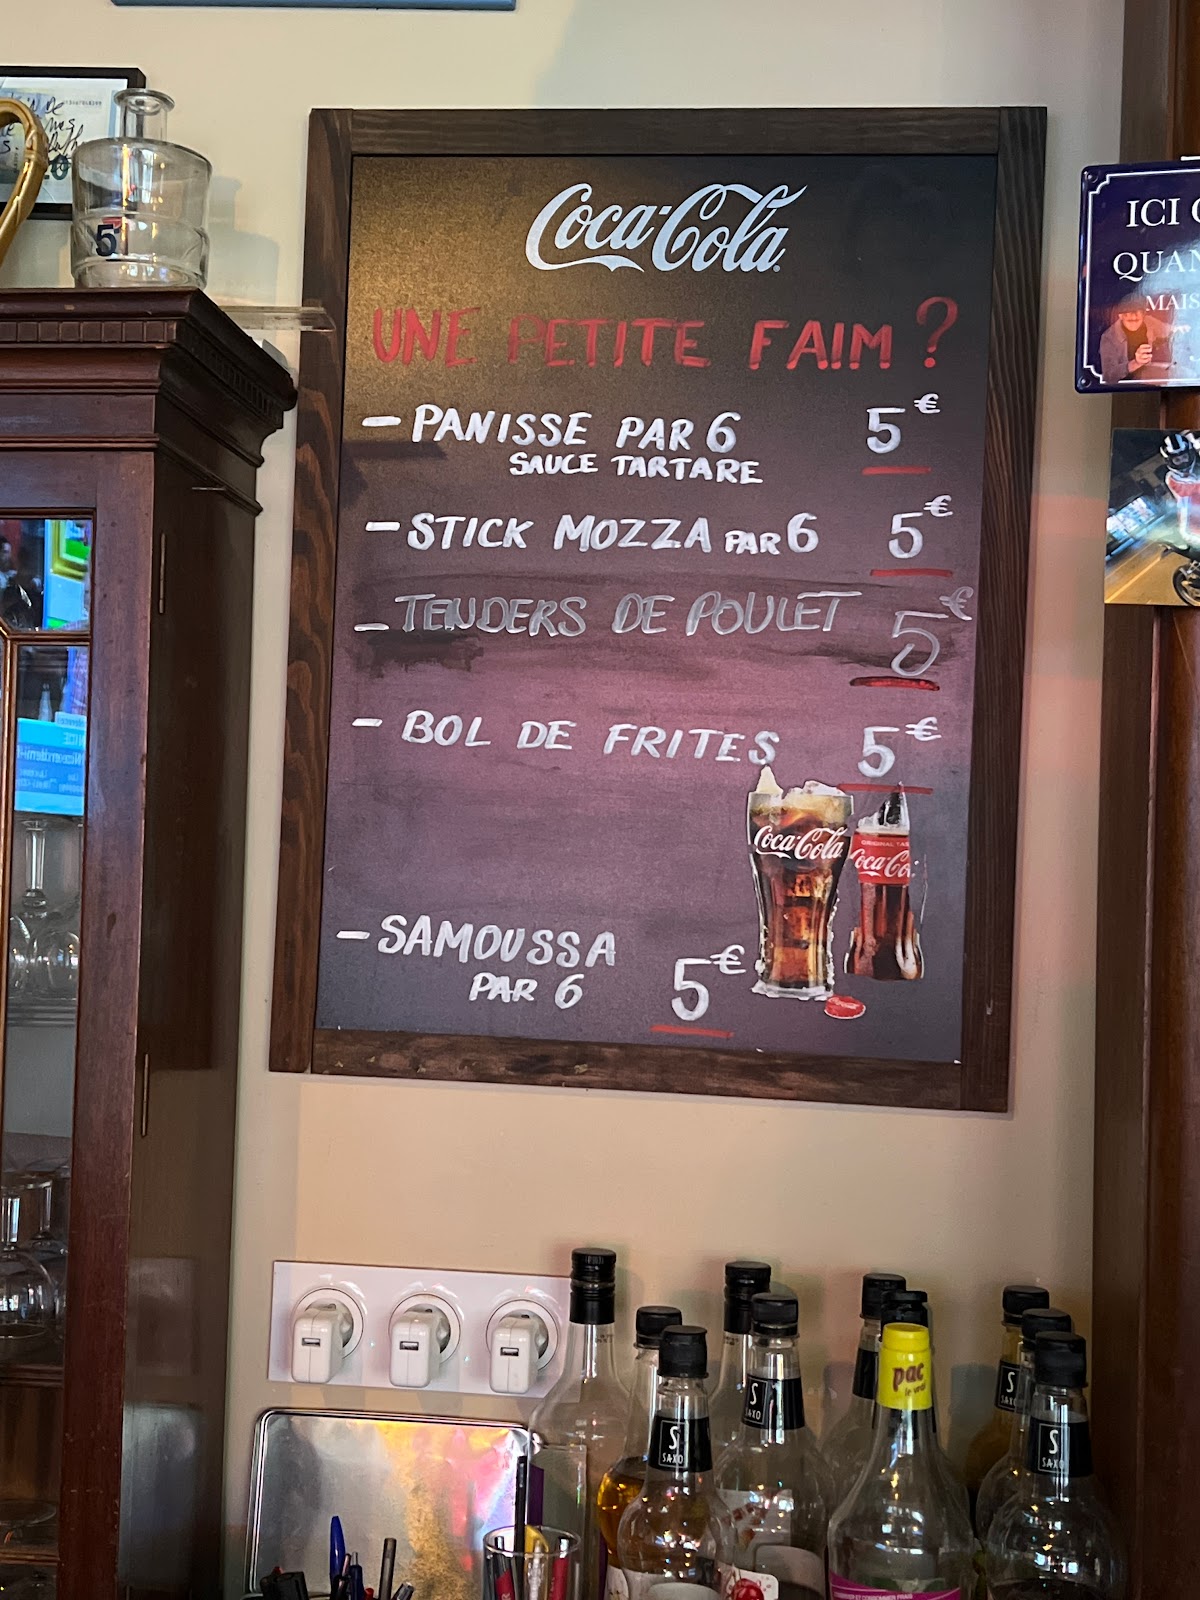 Coca-Cola
UNE PETITE FAIM ?
- PANISSE PAR 6 5€
SAUCE TARTARE
- STICK MOZZA PAR 6 5€
- TENDERS DE POULET 5€
- BOL DE FRITES 5€
Coca-Cola
ORIGINAL TAS
Coca-Co
- SAMOUSSA
PAR 6 5€
5
ICI
QUAN
MAIS
pac
S
SAXO
S
SAXO
S
SAXO
S
SAXO